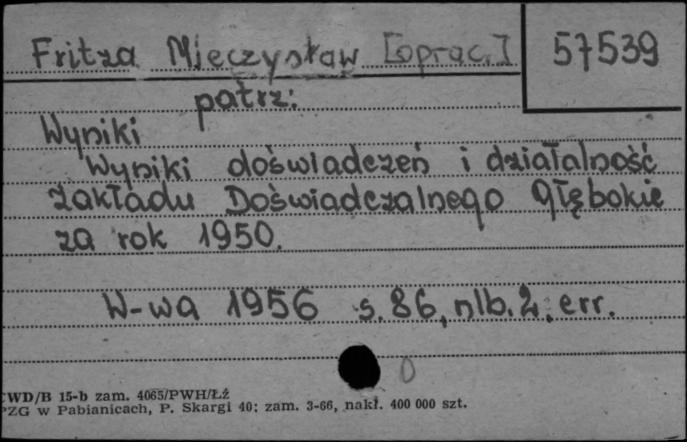 Fritza Mieczysław [oprac.] 57539
patrz:
Wyniki
Wyniki doświadczeń i działalność
Zakładu Doświadczalnego Głębokie
za rok 1950.
W-wa 1956 s. 86, nlb. 2, err.
0
WD/B 15-b zam. 4065/PWH/Łź
PZG w Pabianicach, P. Skargi 40; zam. 3-66, nakł. 400 000 szt.